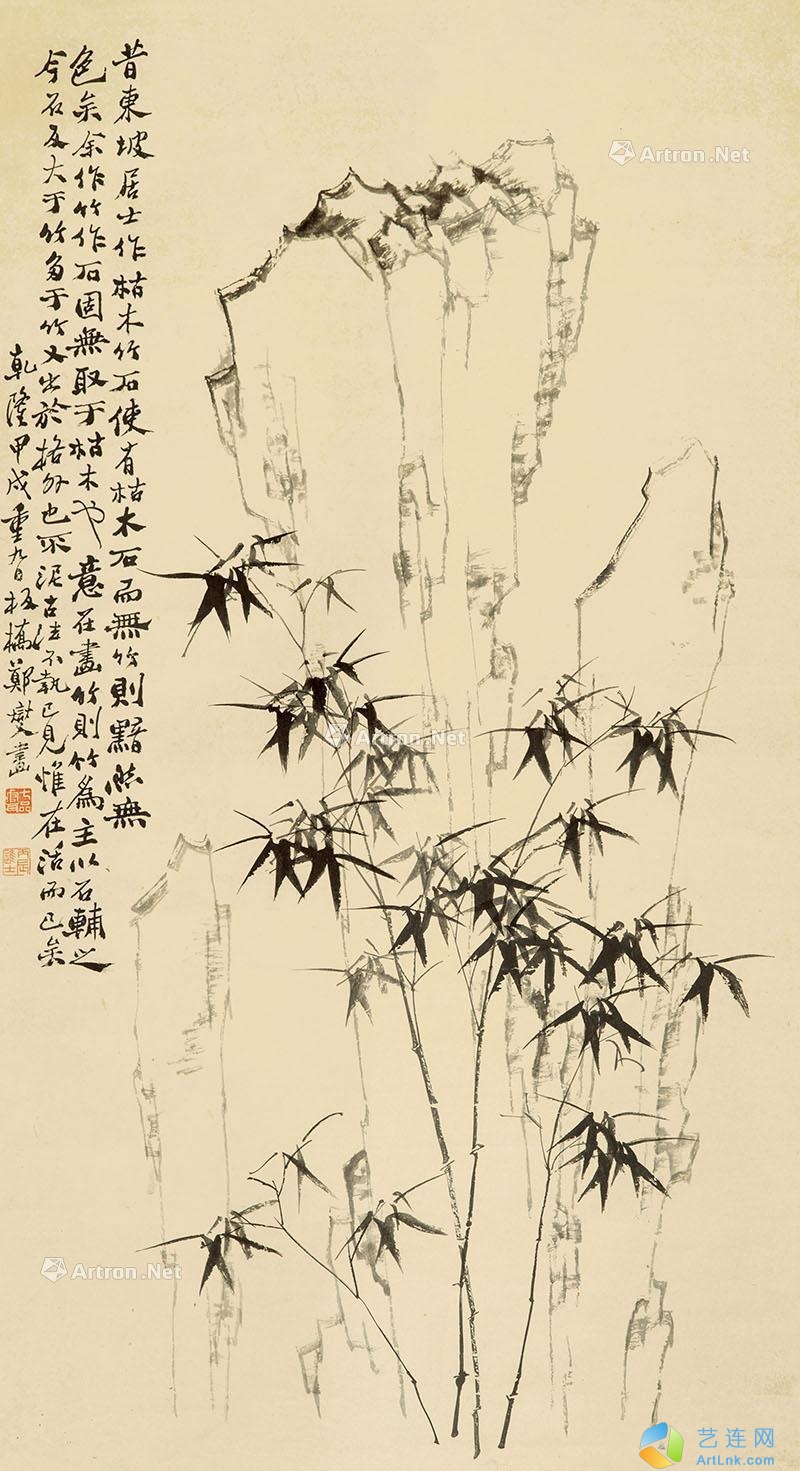 昔東坡居士作枯木竹石使有枯木石而無竹則黯然無
色矣余作竹作石固無取于枯木也意在畫竹則竹為主以石輔之
今石反大于竹多于竹又出於格外也不泥古法不執己見惟在活而已矣
乾隆甲戌重九日板橋鄭燮畫
Artron.Net
Artron.Net
Artron.Net
艺连网
ArtLnk.com